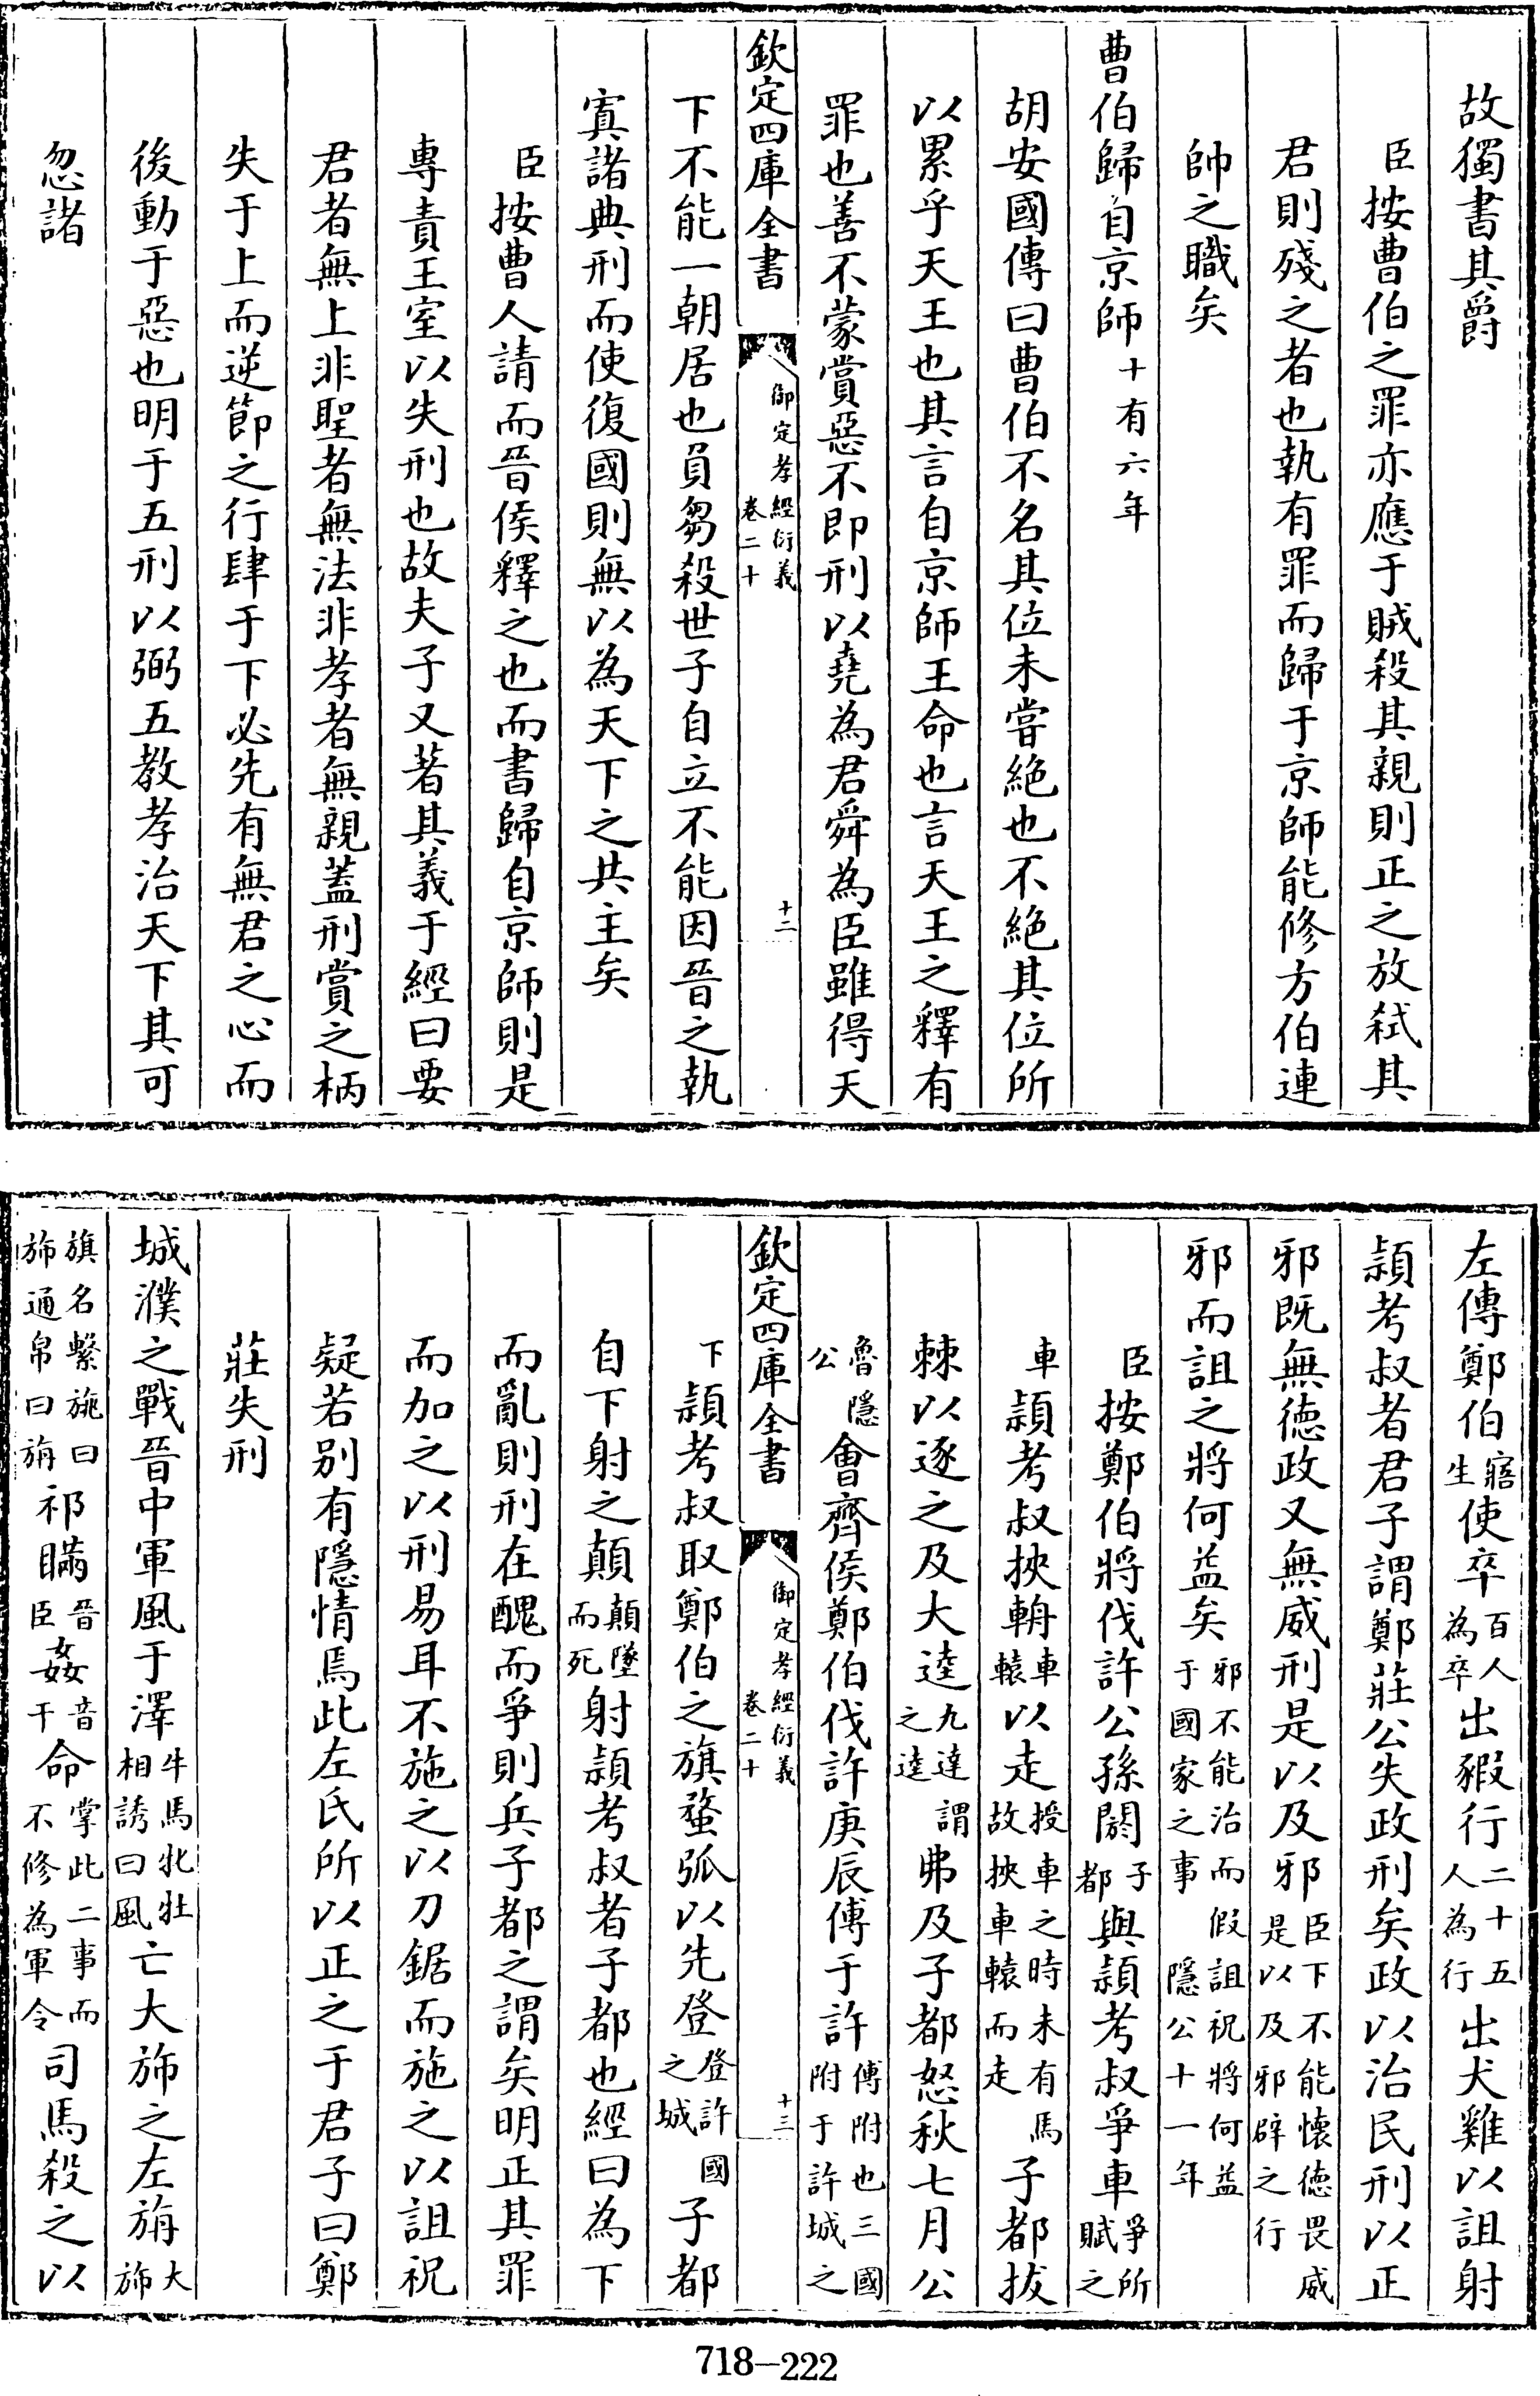 故獨書其爵
臣按曹伯之罪亦應于賊殺其親則正之放弑其
君則殘之者也執有罪而歸于京師能修方伯連
帥之職矣
曹伯歸自京師十有六年
胡安國傳曰曹伯不名其位未嘗絶也不絶其位所
以累乎天王也其言自京師王命也言天王之釋有
罪也善不蒙賞惡不即刑以堯為君舜為臣雖得天
欽定四庫全書 御定孝經衍義 卷二十 十二
下不能一朝居也負芻殺世子自立不能因晉之執
寘諸典刑而使復國則無以為天下之共主矣
臣按曹人請而晉侯釋之也而書歸自京師則是
專責王室以失刑也故夫子又著其義于經曰要
君者無上非聖者無法非孝者無親蓋刑賞之柄
失于上而逆節之行肆于下必先有無君之心而
後動于惡也明于五刑以弼五教孝治天下其可
忽諸
左傳鄭伯寤生使卒百人為卒出豭行二十五人為行出犬雞以詛射
潁考叔者君子謂鄭莊公失政刑矣政以治民刑以正
邪既無德政又無威刑是以及邪臣下不能懷德畏威是以及邪辟之行
邪而詛之將何益矣邪不能治而假詛祝將何益于國家之事隱公十一年
臣按鄭伯將伐許公孫閼子都與潁考叔爭車爭所賦之
車潁考叔挾輈車轅以走授車之時未有馬故挾車轅而走子都拔
棘以逐之及大逵九達謂之逵弗及子都怒秋七月公
魯隱公會齊侯鄭伯伐許庚辰傅于許傅附也三國附于許城之
欽定四庫全書 御定孝經衍義 卷二十 十三
下潁考叔取鄭伯之旗蝥弧以先登登許國之城子都
自下射之顛顛墜而死射潁考叔者子都也經曰為下
而亂則刑在醜而爭則兵子都之謂矣明正其罪
而加之以刑易耳不施之以刀鋸而施之以詛祝
疑若别有隱情焉此左氏所以正之于君子曰鄭
莊失刑
城濮之戰晉中軍風于澤牛馬牝牡相誘曰風亡大旆之左旃大旆
旗名繫旐曰旆通帛曰旃祁瞞晉臣姦音干命掌此二事而不修為軍令司馬殺之以
718-222